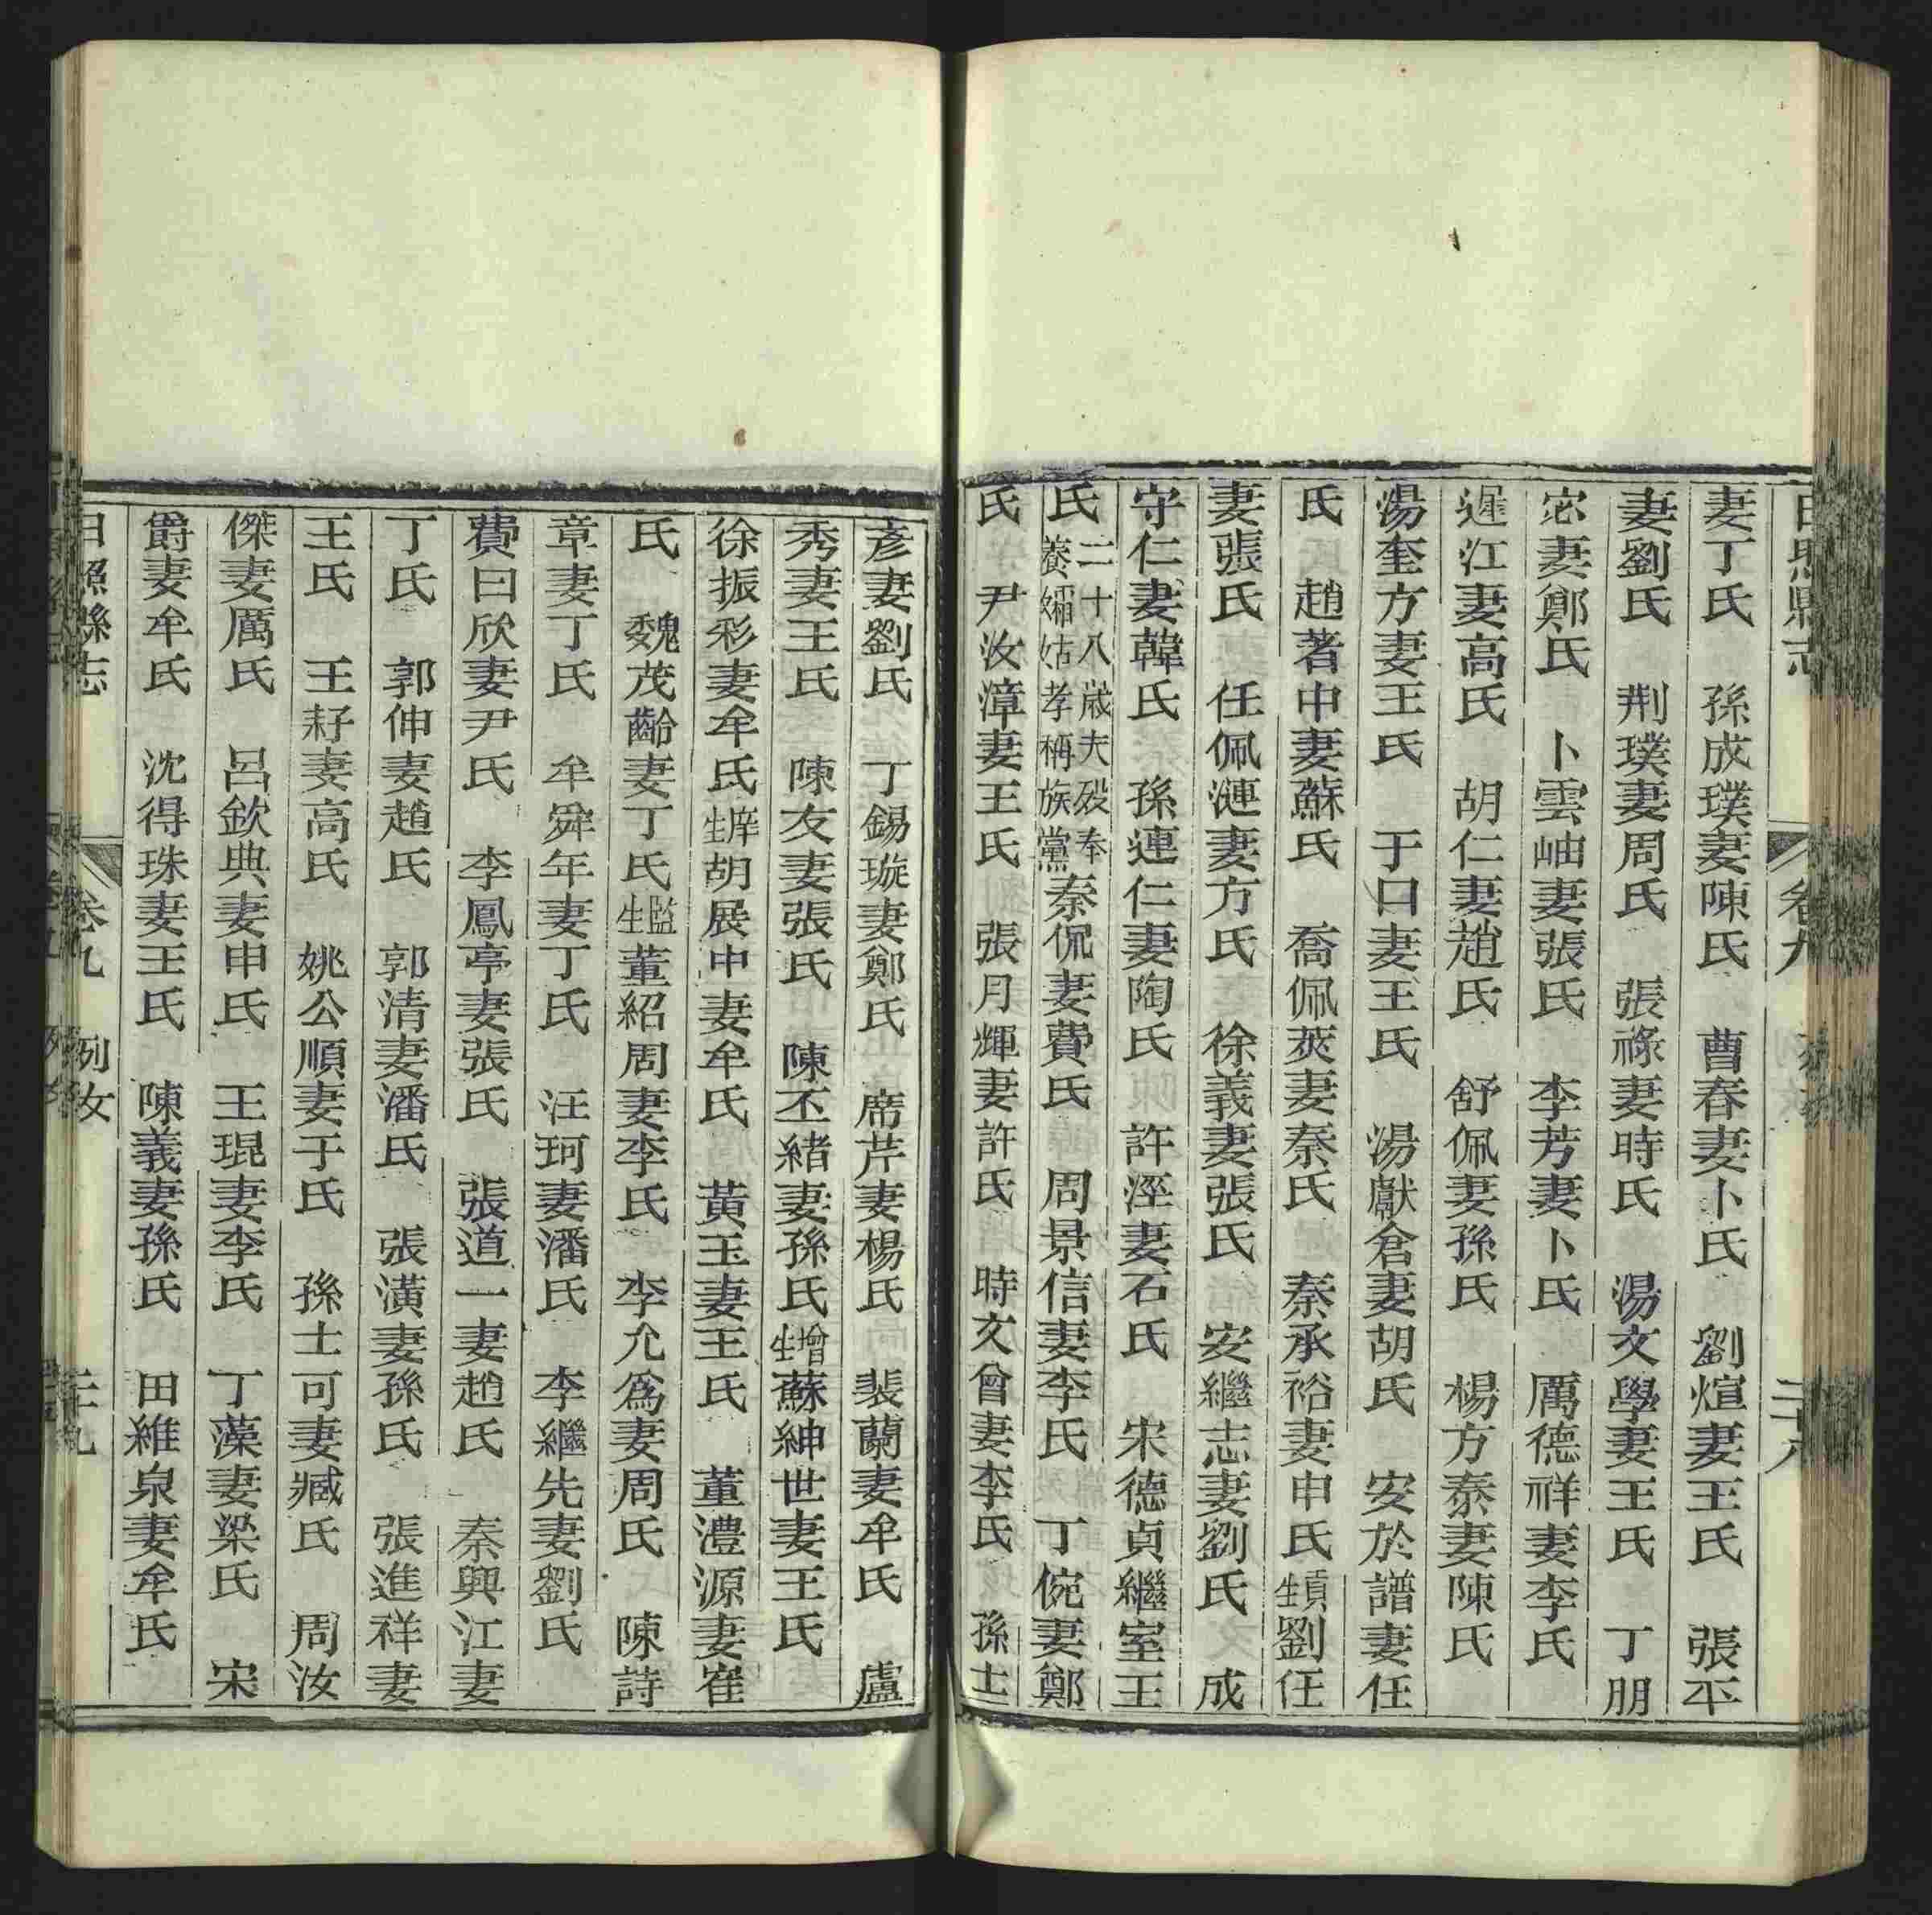 日照縣志 卷九 二十八
妻丁氏 孫成璞妻陳氏 曹春妻卜氏 劉煊妻王氏 張平
妻劉氏 荆璞妻周氏 張祿妻時氏 湯文學妻王氏 丁朋
宓妻鄭氏 卜雲岫妻張氏 李芳妻卜氏 厲德祥妻李氏
遲江妻高氏 胡仁妻趙氏 舒佩妻孫氏 楊方泰妻陳氏
湯奎方妻王氏 于口妻王氏 湯獻倉妻胡氏 安於譜妻任
氏 趙著中妻蘇氏 喬佩莢妻秦氏 秦承裕妻申氏貢生劉任
妻張氏 任佩漣妻方氏 徐義妻張氏 安繼志妻劉氏 成
守仁妻韓氏 孫連仁妻陶氏 許溼妻石氏 宋德貞繼室王
氏二十八歲夫歿奉養孀姑孝稱族黨秦侃妻費氏 周景信妻李氏 丁惋妻鄭
氏 尹汝漳妻王氏 張月輝妻許氏 時文曾妻李氏 孫士
彥妻劉氏 丁錫璇妻鄭氏 席芹妻楊氏 裴蘭妻牟氏 盧
秀妻王氏 陳友妻張氏 陳丕緒妻孫氏增生蘇紳世妻王氏
徐振彩妻牟氏庠生胡展中妻牟氏 黃玉妻王氏 董澧源妻崔
氏 魏茂齡妻丁氏監生董紹周妻李氏 李允爲妻周氏 陳詩
章妻丁氏 牟舜年妻丁氏 汪珂妻潘氏 李繼先妻劉氏
費曰欣妻尹氏 李鳳亭妻張氏 張道一妻趙氏 秦興江妻
丁氏 郭伸妻趙氏 郭清妻潘氏 張潢妻孫氏 張進祥妻
王氏 王耔妻高氏 姚公順妻于氏 孫士可妻臧氏 周汝
傑妻厲氏 呂欽典妻申氏 王琨妻李氏 丁藻妻梁氏 宋
爵妻牟氏 沈得珠妻王氏 陳義妻孫氏 田維泉妻牟氏
日照縣志 卷九 列女 二十九